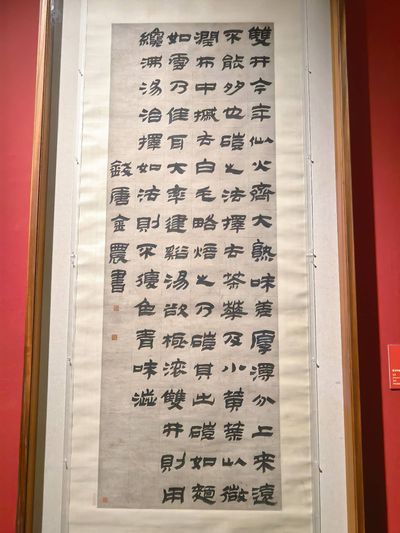 雙井今年似火齊大熟味差厚澤分上來遠
不能多也磑之法擇去茶華及小黃葉以微
潤布中摵去白毛略焙之乃磑其出磑如麵
如雪乃佳耳大率建谿湯欲極滾雙井則用
纔沸湯治擇如法則不復色青味澁
錢唐金農書